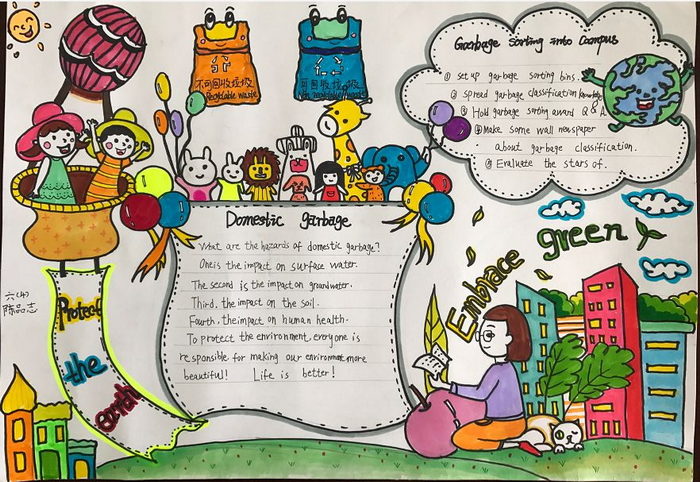 不可回收垃圾
可回收垃圾
Garbage Sorting into Campus
① set up garbage sorting bins.
② spread garbage classification knowledge
③ Hold garbage sorting award Q & A
④ Make some wall newspaper
about garbage classification.
⑤ Evaluate the stars of.
Domestic garbage
What are the hazards of domestic garbage?
One is the impact on surface water.
The second is the impact on groundwater.
Third, the impact on the soil.
Fourth, the impact on human health.
To protect the environment, everyone is
responsible for making our environment more
beautiful! Life is better!
Embrace
green
六(4)
陈品志
Protect
the
earth